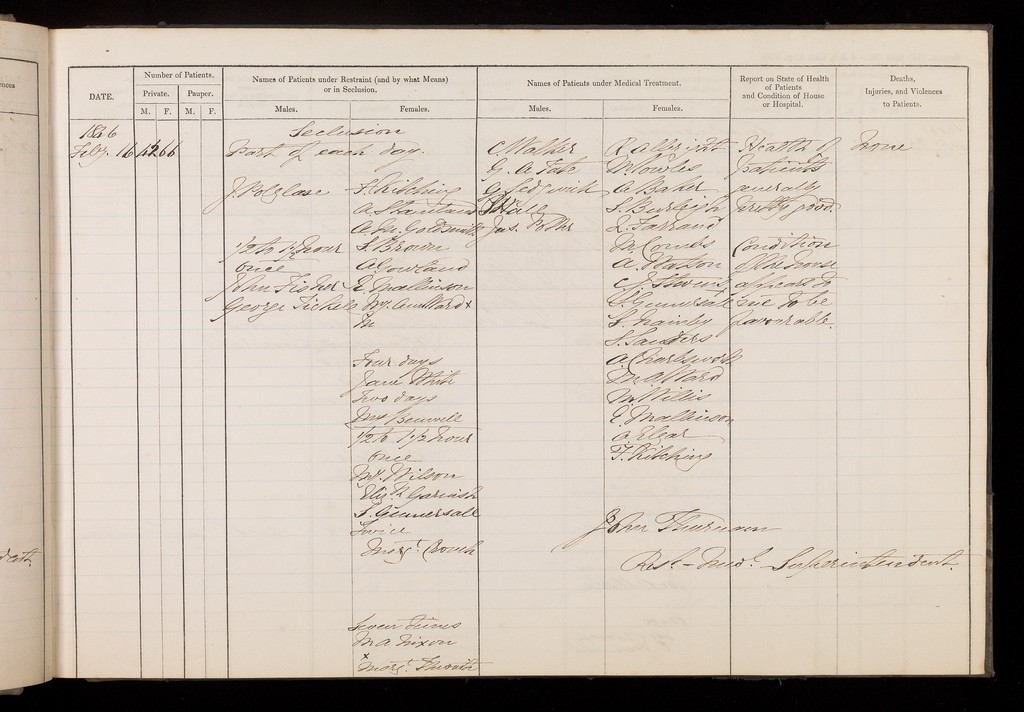 ences
death
DATE.
Number of Patients.
Private.
Pauper.
M. F. M. F.
Names of Patients under Restraint (and by what Means)
or in Seclusion.
Males.
Females.
Names of Patients under Medical Treatment.
Males.
Females.
Report on State of Health
of Patients
and Condition of House
or Hospital.
Deaths,
Injuries, and Violences
to Patients.
1846
Feby. 16
66
Seclusion
Part of each day.
1/2 to 1 1/2 hour
once
John Fisher
George Tickels
F. Kitching
S. Brown
A Gowland
E. Mallinson
My. Ann Ward x
M
Four days
Jane White
Two days
1/2 to 1 1/2 hour
once
My. Wilson
S. Gummersall
Twice
Margt. Crouch
Seven times
M A Nixon
x
C. Mather
G. A Tate
G. Sedgwick
R Allbright
M Fowles
A Baker
S. Burleigh
L. Farrand
M Coombs
A. Watson
S Gummersall
S. Sanders
A. Charlesworth
M A Ward
M. Willis
E. Mallinson
A. Elgar
F. Kitching
Health of
patients
generally
pretty good.
Condition
of the house
appears to
me to be
favourable.
None
John Thurnam
Rest. Medl. Superintendent.